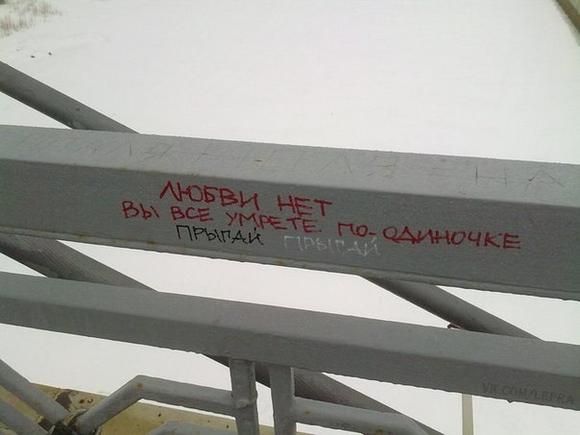 ЛЮБВИ НЕТ
ВЫ ВСЕ УМРЕТЕ. ПО-ОДИНОЧКЕ
ПРЫГАЙ ПРЫГАЙ
VK.COM/LEPRA